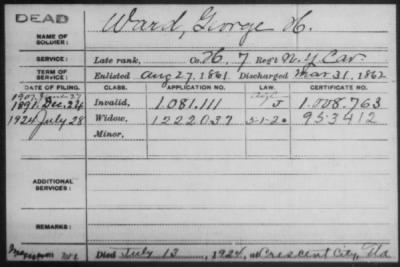 DEAD
NAME OF SOLDIER: Ward, George H.
SERVICE: Late rank, Co. H, 7 Reg't N.Y. Cav.
TERM OF SERVICE: Enlisted Aug 27, 1861. Discharged Mar 31, 1862
DATE OF FILING. CLASS. APPLICATION NO. LAW. CERTIFICATE NO.
1891 Dec. 24 Invalid, 1.081.111 J 1.008.763
1924 July 28 Widow, 1222037 5-1-20 953412
Minor,
ADDITIONAL SERVICES:
REMARKS:
Died July 13, 1924, at Crescent City, Fla